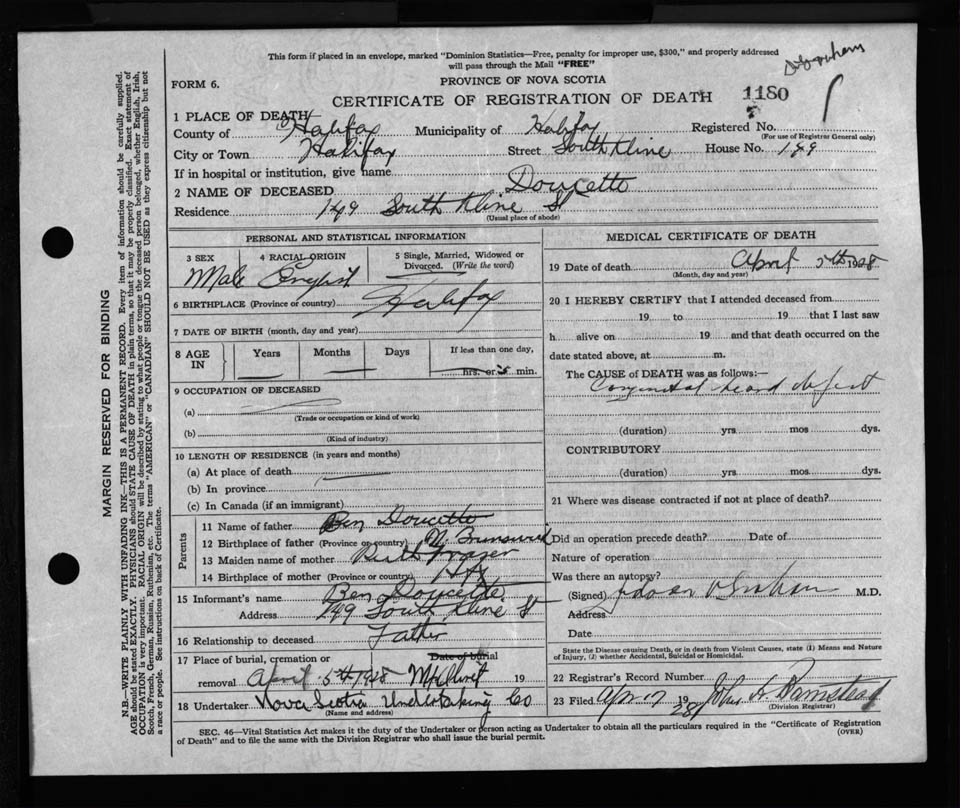 This form if placed in an envelope, marked "Dominion Statistics—Free, penalty for improper use, $300," and properly addressed
will pass through the Mail "FREE"
FORM 6.
PROVINCE OF NOVA SCOTIA
CERTIFICATE OF REGISTRATION OF DEATH 1180
1 PLACE OF DEATH
County of Halifax Municipality of Halifax Registered No.
(For use of Registrar General only)
City or Town Halifax Street South Kline House No. 149
If in hospital or institution, give name
2 NAME OF DECEASED Doucette
Residence 149 South Kline St
(Usual place of abode)
PERSONAL AND STATISTICAL INFORMATION
3 SEX 4 RACIAL ORIGIN 5 Single, Married, Widowed or
Divorced. (Write the word)
Male English
6 BIRTHPLACE (Province or country) Halifax
7 DATE OF BIRTH (month, day and year)
8 AGE IN Years Months Days If less than one day,
hrs. or min.
9 OCCUPATION OF DECEASED
(a)
(Trade or occupation or kind of work)
(b)
(Kind of industry)
10 LENGTH OF RESIDENCE (in years and months)
(a) At place of death
(b) In province
(c) In Canada (if an immigrant)
Parents
11 Name of father Ben Doucette
12 Birthplace of father (Province or country) N. Brunswick
13 Maiden name of mother Ruth Fraser
14 Birthplace of mother (Province or country) Hfx
15 Informant's name Ben Doucette
Address 149 South Kline St
16 Relationship to deceased Father
17 Place of burial, cremation or Date of burial
removal April 5th 1928 Mt Olivet 19
18 Undertaker Nova Scotia Undertaking Co
(Name and address)
MEDICAL CERTIFICATE OF DEATH
19 Date of death April 5th 1928
(Month, day and year)
20 I HEREBY CERTIFY that I attended deceased from
19 to 19 that I last saw
h alive on 19 and that death occurred on the
date stated above, at m.
The CAUSE of DEATH was as follows:—
Congenital heart defect
(duration) yrs. mos dys.
CONTRIBUTORY
(duration) yrs. mos. dys.
21 Where was disease contracted if not at place of death?
Did an operation precede death? Date of
Nature of operation
Was there an autopsy?
(Signed) M.D.
Address
Date
State the Disease causing Death, or in death from Violent Causes, state (1) Means and Nature
of Injury, (2) whether Accidental, Suicidal or Homicidal.
22 Registrar's Record Number
23 Filed Apr 17 1928 John A. Barnstead
(Division Registrar)
SEC. 46—Vital Statistics Act makes it the duty of the Undertaker or person acting as Undertaker to obtain all the particulars required in the "Certificate of Registration
of Death" and to file the same with the Division Registrar who shall issue the burial permit.
(OVER)
MARGIN RESERVED FOR BINDING
N.B.—WRITE PLAINLY WITH UNFADING INK—THIS IS A PERMANENT RECORD. Every item of information should be carefully supplied.
AGE should be stated EXACTLY. PHYSICIANS should STATE CAUSE OF DEATH in plain terms, so that it may be properly classified. Exact statement of
OCCUPATION is very important. RACIAL ORIGIN will be described by stating to what people or tongue the deceased person belonged, whether English, Irish,
Scotch, French, German, Russian, Ruthenian, etc. The terms "AMERICAN" or "CANADIAN" SHOULD NOT BE USED as they express citizenship but not
a race or people. See instructions on back of Certificate.